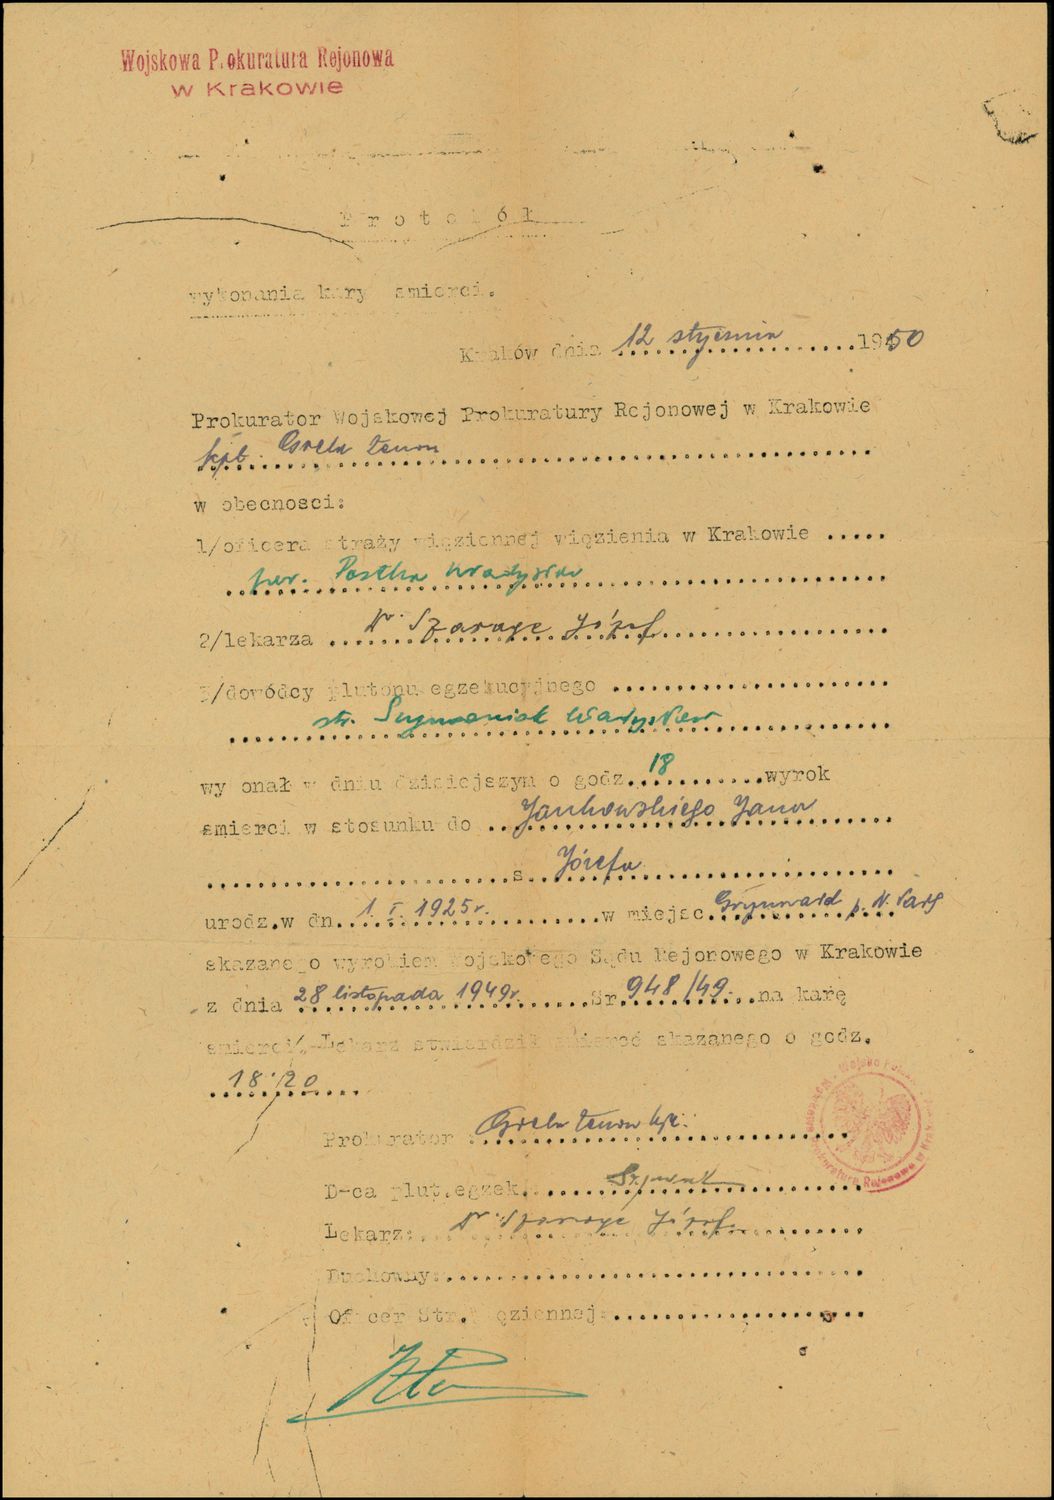 Wojskowa Prokuratura Rejonowa
w Krakowie
Protokół
wykonania kary smierci.
Kraków dnia 12 stycznia 1950
Prokurator Wojskowej Prokuratury Rejonowej w Krakowie
kpt. Grela Zenon
w obecnosci:
1/oficera straży więziennej więzienia w Krakowie
Władysław
2/lekarza Dr. Józef
3/dowódcy plutonu egzekucyjnego
str. Szymaniak Władysław
wykonał w dniu dzisiejszym o godz. 18 wyrok
smierci w stosunku do Jankowskiego Jana
s. Józefa
urodz.w dn. 1. I. 1925r. w miejsc. Grynwald p. N. Targ
skazanego wyrokiem Wojskowego Sądu Rejonowego w Krakowie
z dnia 28 listopada 1949r. Sr. 948/49. na karę
smierci.-Lekarz stwierdził smierć skazanego o godz.
18.20
Prokurator : Grela Zenon kpt.
D-ca plut.egzek.
Lekarz: Dr Józef
Duchowny:
Oficer Str.Więziennej: